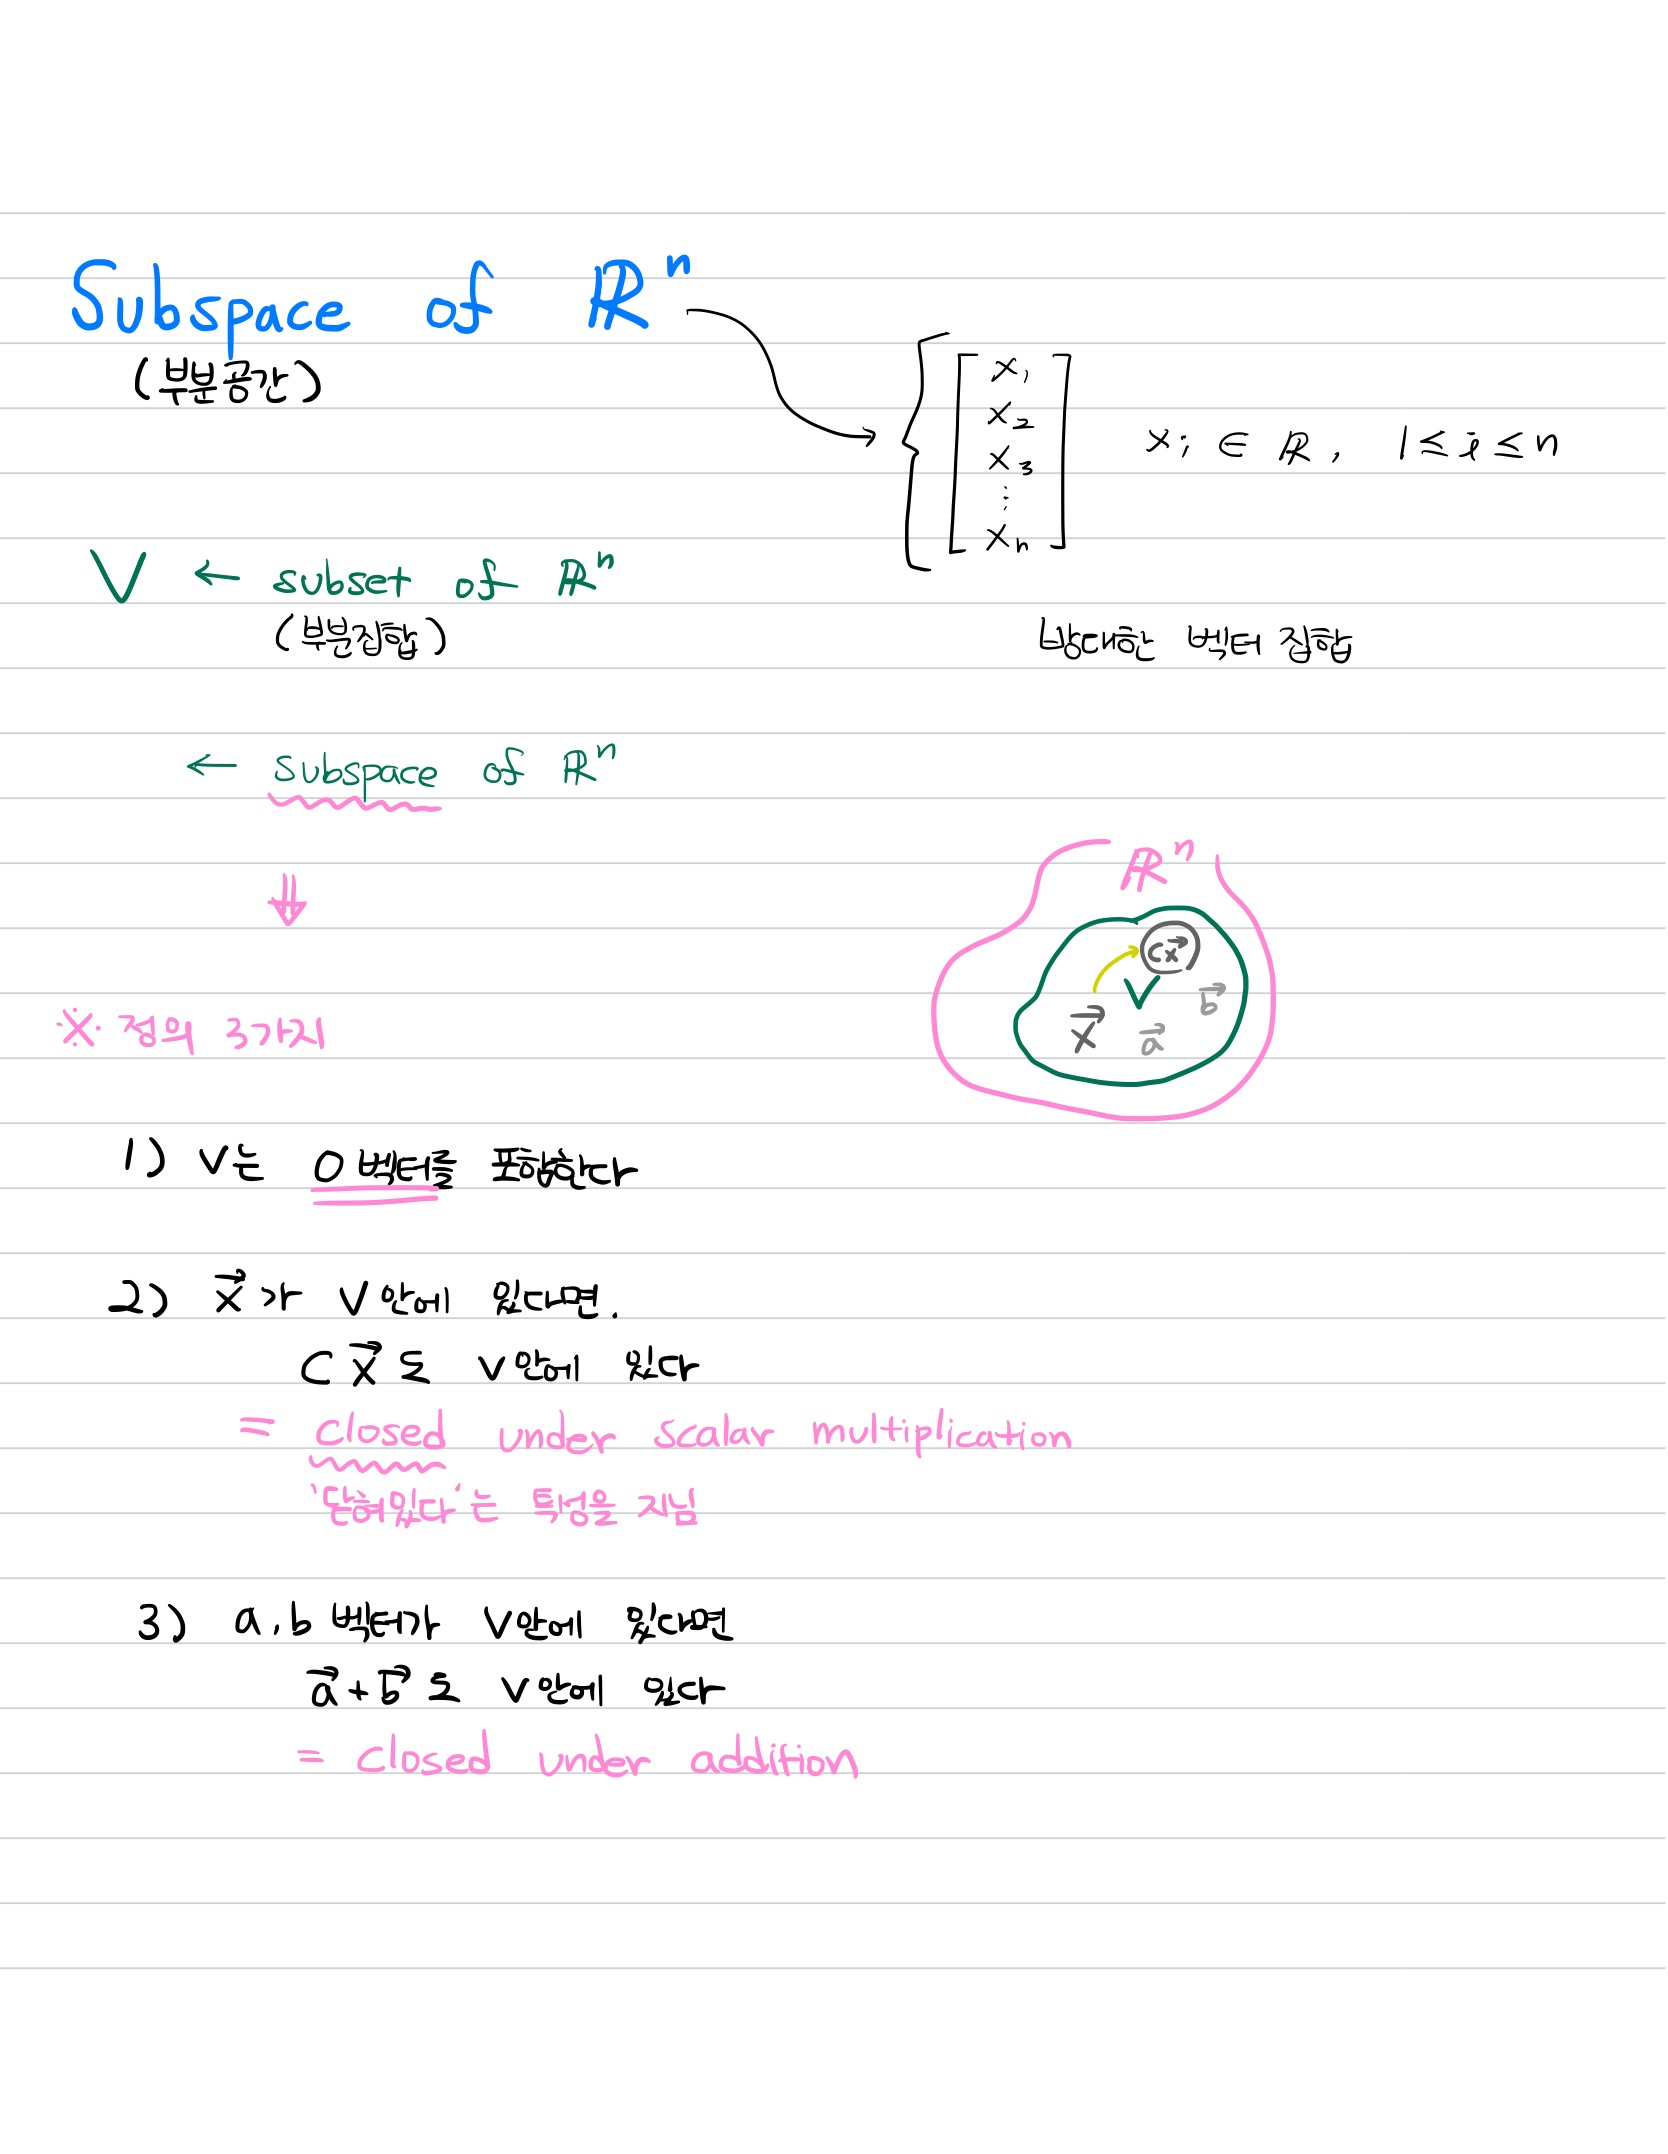 Subspace of ℝⁿ
(부분공간)
x₁
x₂
x₃
⋮
xₙ
xᵢ ∈ ℝ, 1 ≤ i ≤ n
V ← subset of ℝⁿ
(부분집합)
방대한 벡터 집합
← subspace of ℝⁿ
⇓
ℝⁿ
cx⃗
V
b⃗
x⃗
a⃗
※ 정의 3가지
1) V는 0벡터를 포함한다
2) x⃗가 V안에 있다면.
Cx⃗도 V안에 있다
= closed under scalar multiplication
'닫혀있다'는 특성을 지님
3) a,b 벡터가 V안에 있다면
a⃗+b⃗도 V안에 있다
= closed under addition